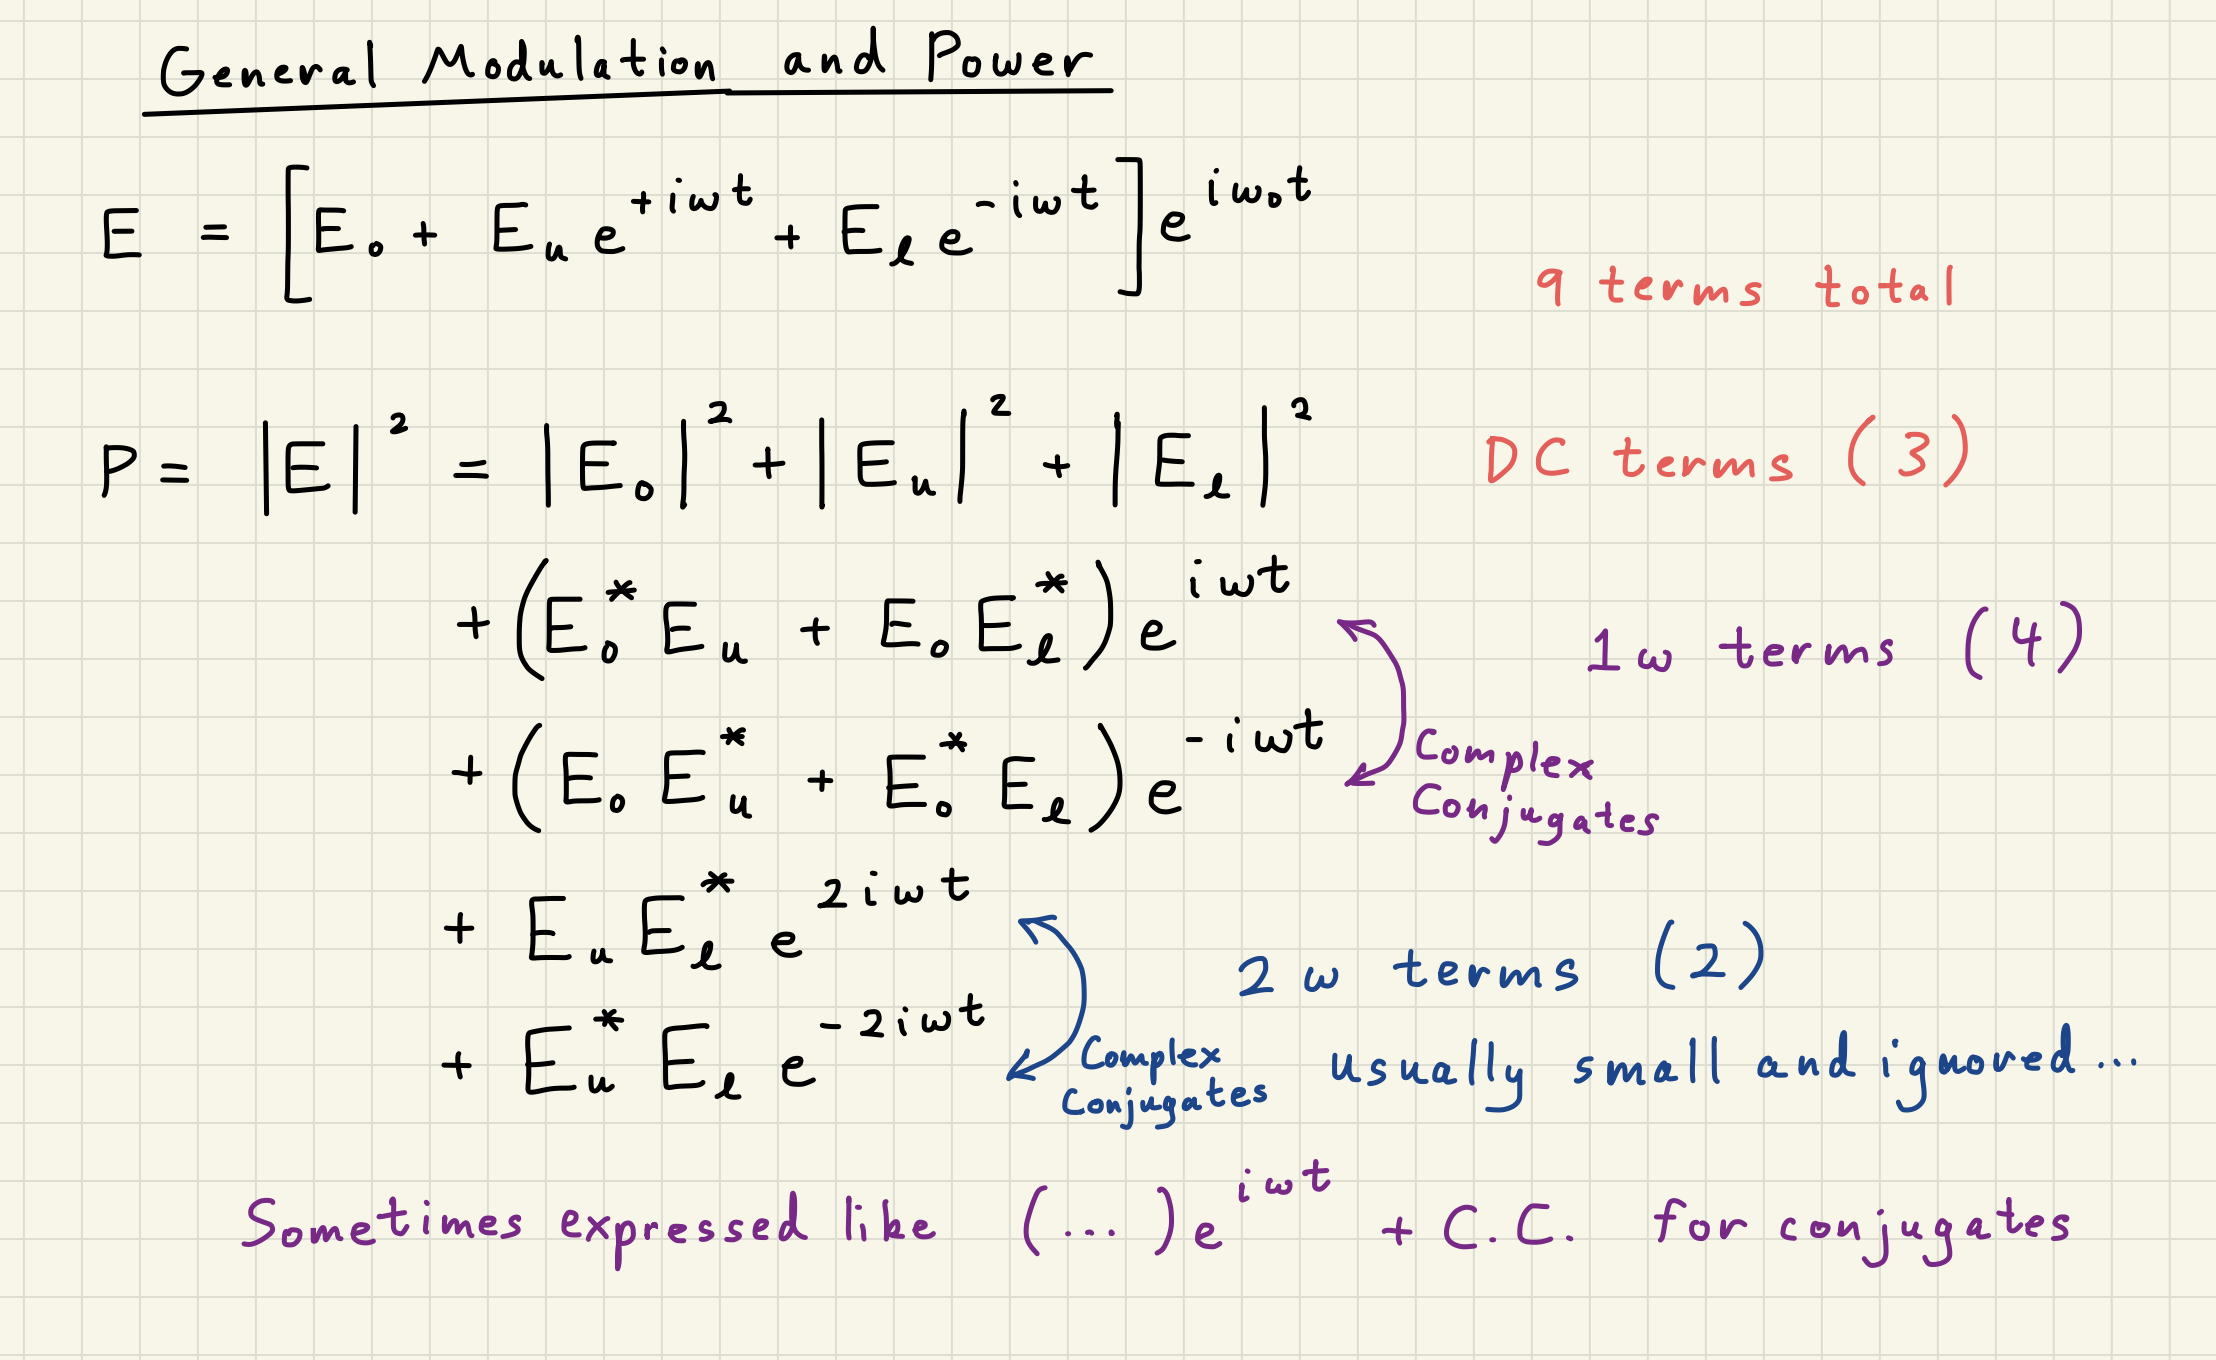 General Modulation and Power
E = [E₀ + E_u e^{+iωt} + E_ℓ e^{-iωt}] e^{iω₀t}
9 terms total
P = |E|² = |E₀|² + |E_u|² + |E_ℓ|² DC terms (3)
+ (E₀* E_u + E₀ E_ℓ*) e^{iωt} 1ω terms (4)
+ (E₀ E_u* + E₀* E_ℓ) e^{-iωt} Complex
Conjugates
+ E_u E_ℓ* e^{2iωt} 2ω terms (2)
+ E_u* E_ℓ e^{-2iωt} Complex
Conjugates
usually small and ignored...
Sometimes expressed like (...) e^{iωt} + C.C. for conjugates